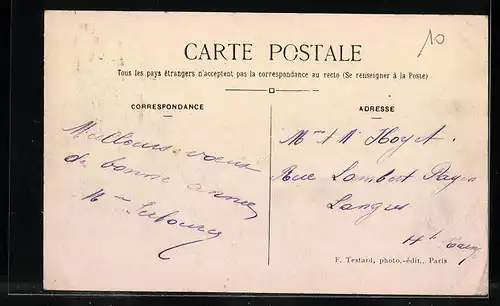 10
CARTE POSTALE
Tous les pays étrangers n'acceptent pas la correspondance au recto (Se renseigner à la Poste)
CORRESPONDANCE
Meilleurs vœux
de bonne année
ADRESSE
Mme & M.
Rue Lambert Payen
Langres
Hte Marne
F. Testard, photo.-édit., Paris